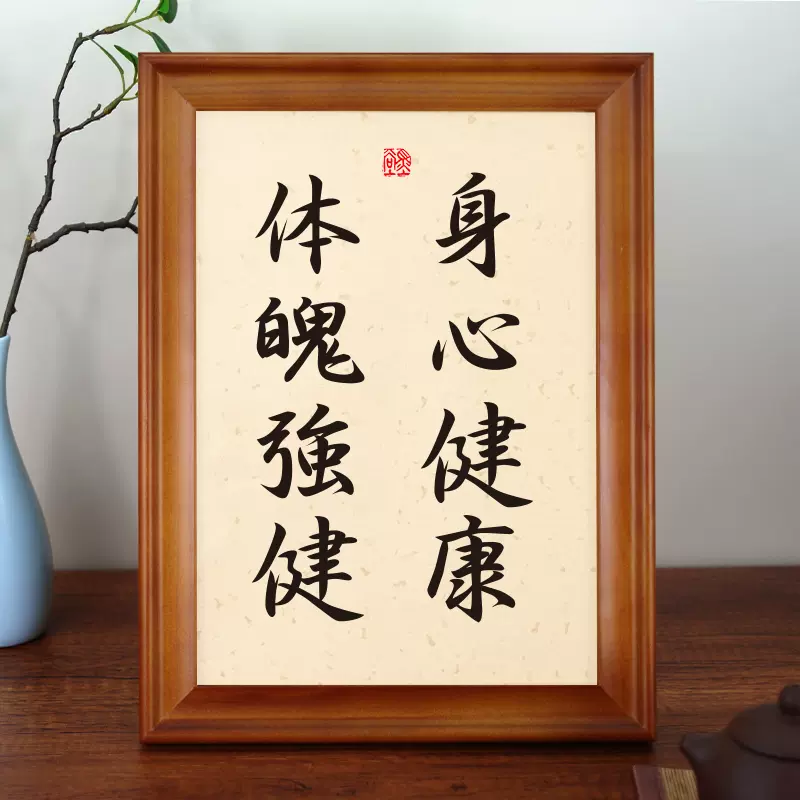 身心健康
体魄強健